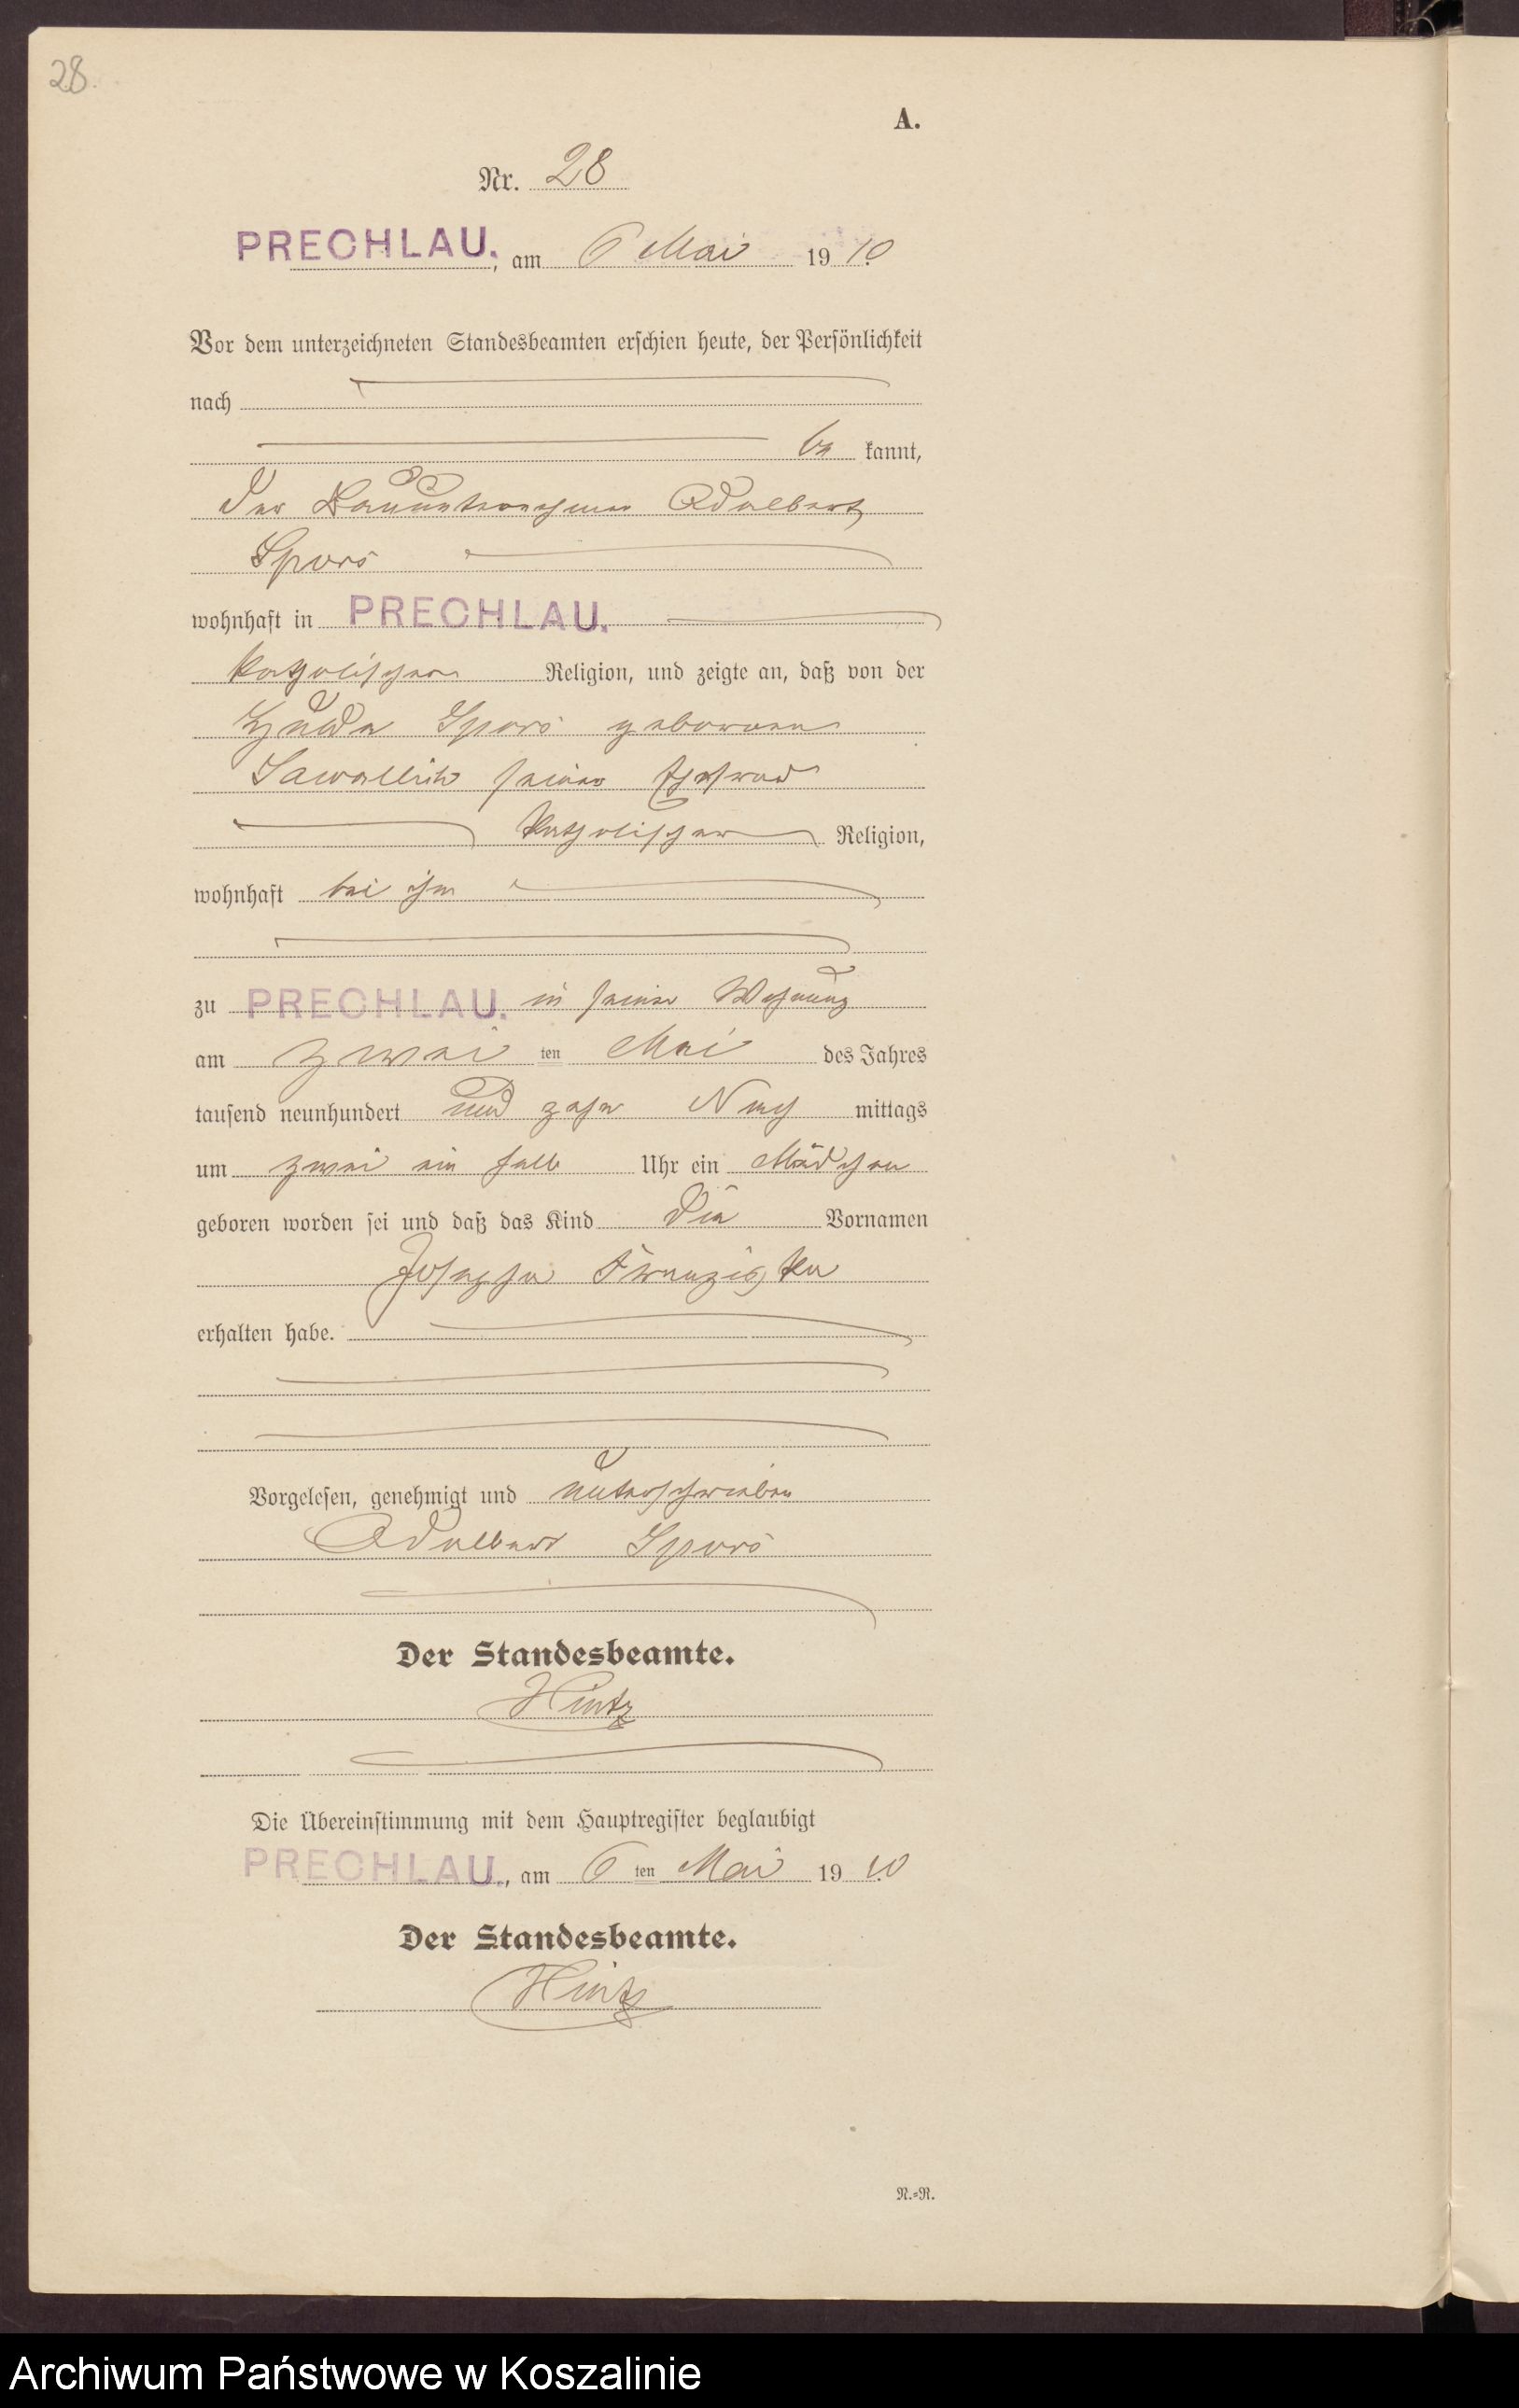 28.
A.
Nr. 28
PRECHLAU., am 6 Mai 1910.
Vor dem unterzeichneten Standesbeamten erschien heute, der Persönlichkeit
nach
be kannt,
der Bauunternehmer Adalbert
Spors
wohnhaft in PRECHLAU.
katholischer Religion, und zeigte an, daß von der
Spors geborenen
seiner Ehefrau
katholischer Religion,
wohnhaft bei ihm
zu PRECHLAU. in seiner Wohnung
am zwei ten Mai des Jahres
tausend neunhundert und zehn Nach mittags
um zwei ein halb Uhr ein Mädchen
geboren worden sei und daß das Kind die Vornamen
Josepha Franziska
erhalten habe.
Vorgelesen, genehmigt und unterschrieben
Adalbert Spors
Der Standesbeamte.
Hintz
Die Übereinstimmung mit dem Hauptregister beglaubigt
PRECHLAU., am 6 ten Mai 1910.
Der Standesbeamte.
Hintz
N.=R.
Archiwum Państwowe w Koszalinie